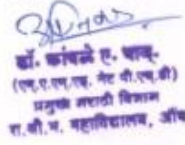 डॉ. कांबळे ए. वाय.
(एम.ए.एम.एड. नेट पी.एच.डी)
प्रमुख मराठी विभाग
रा.बी.म. महाविद्यालय, औंध